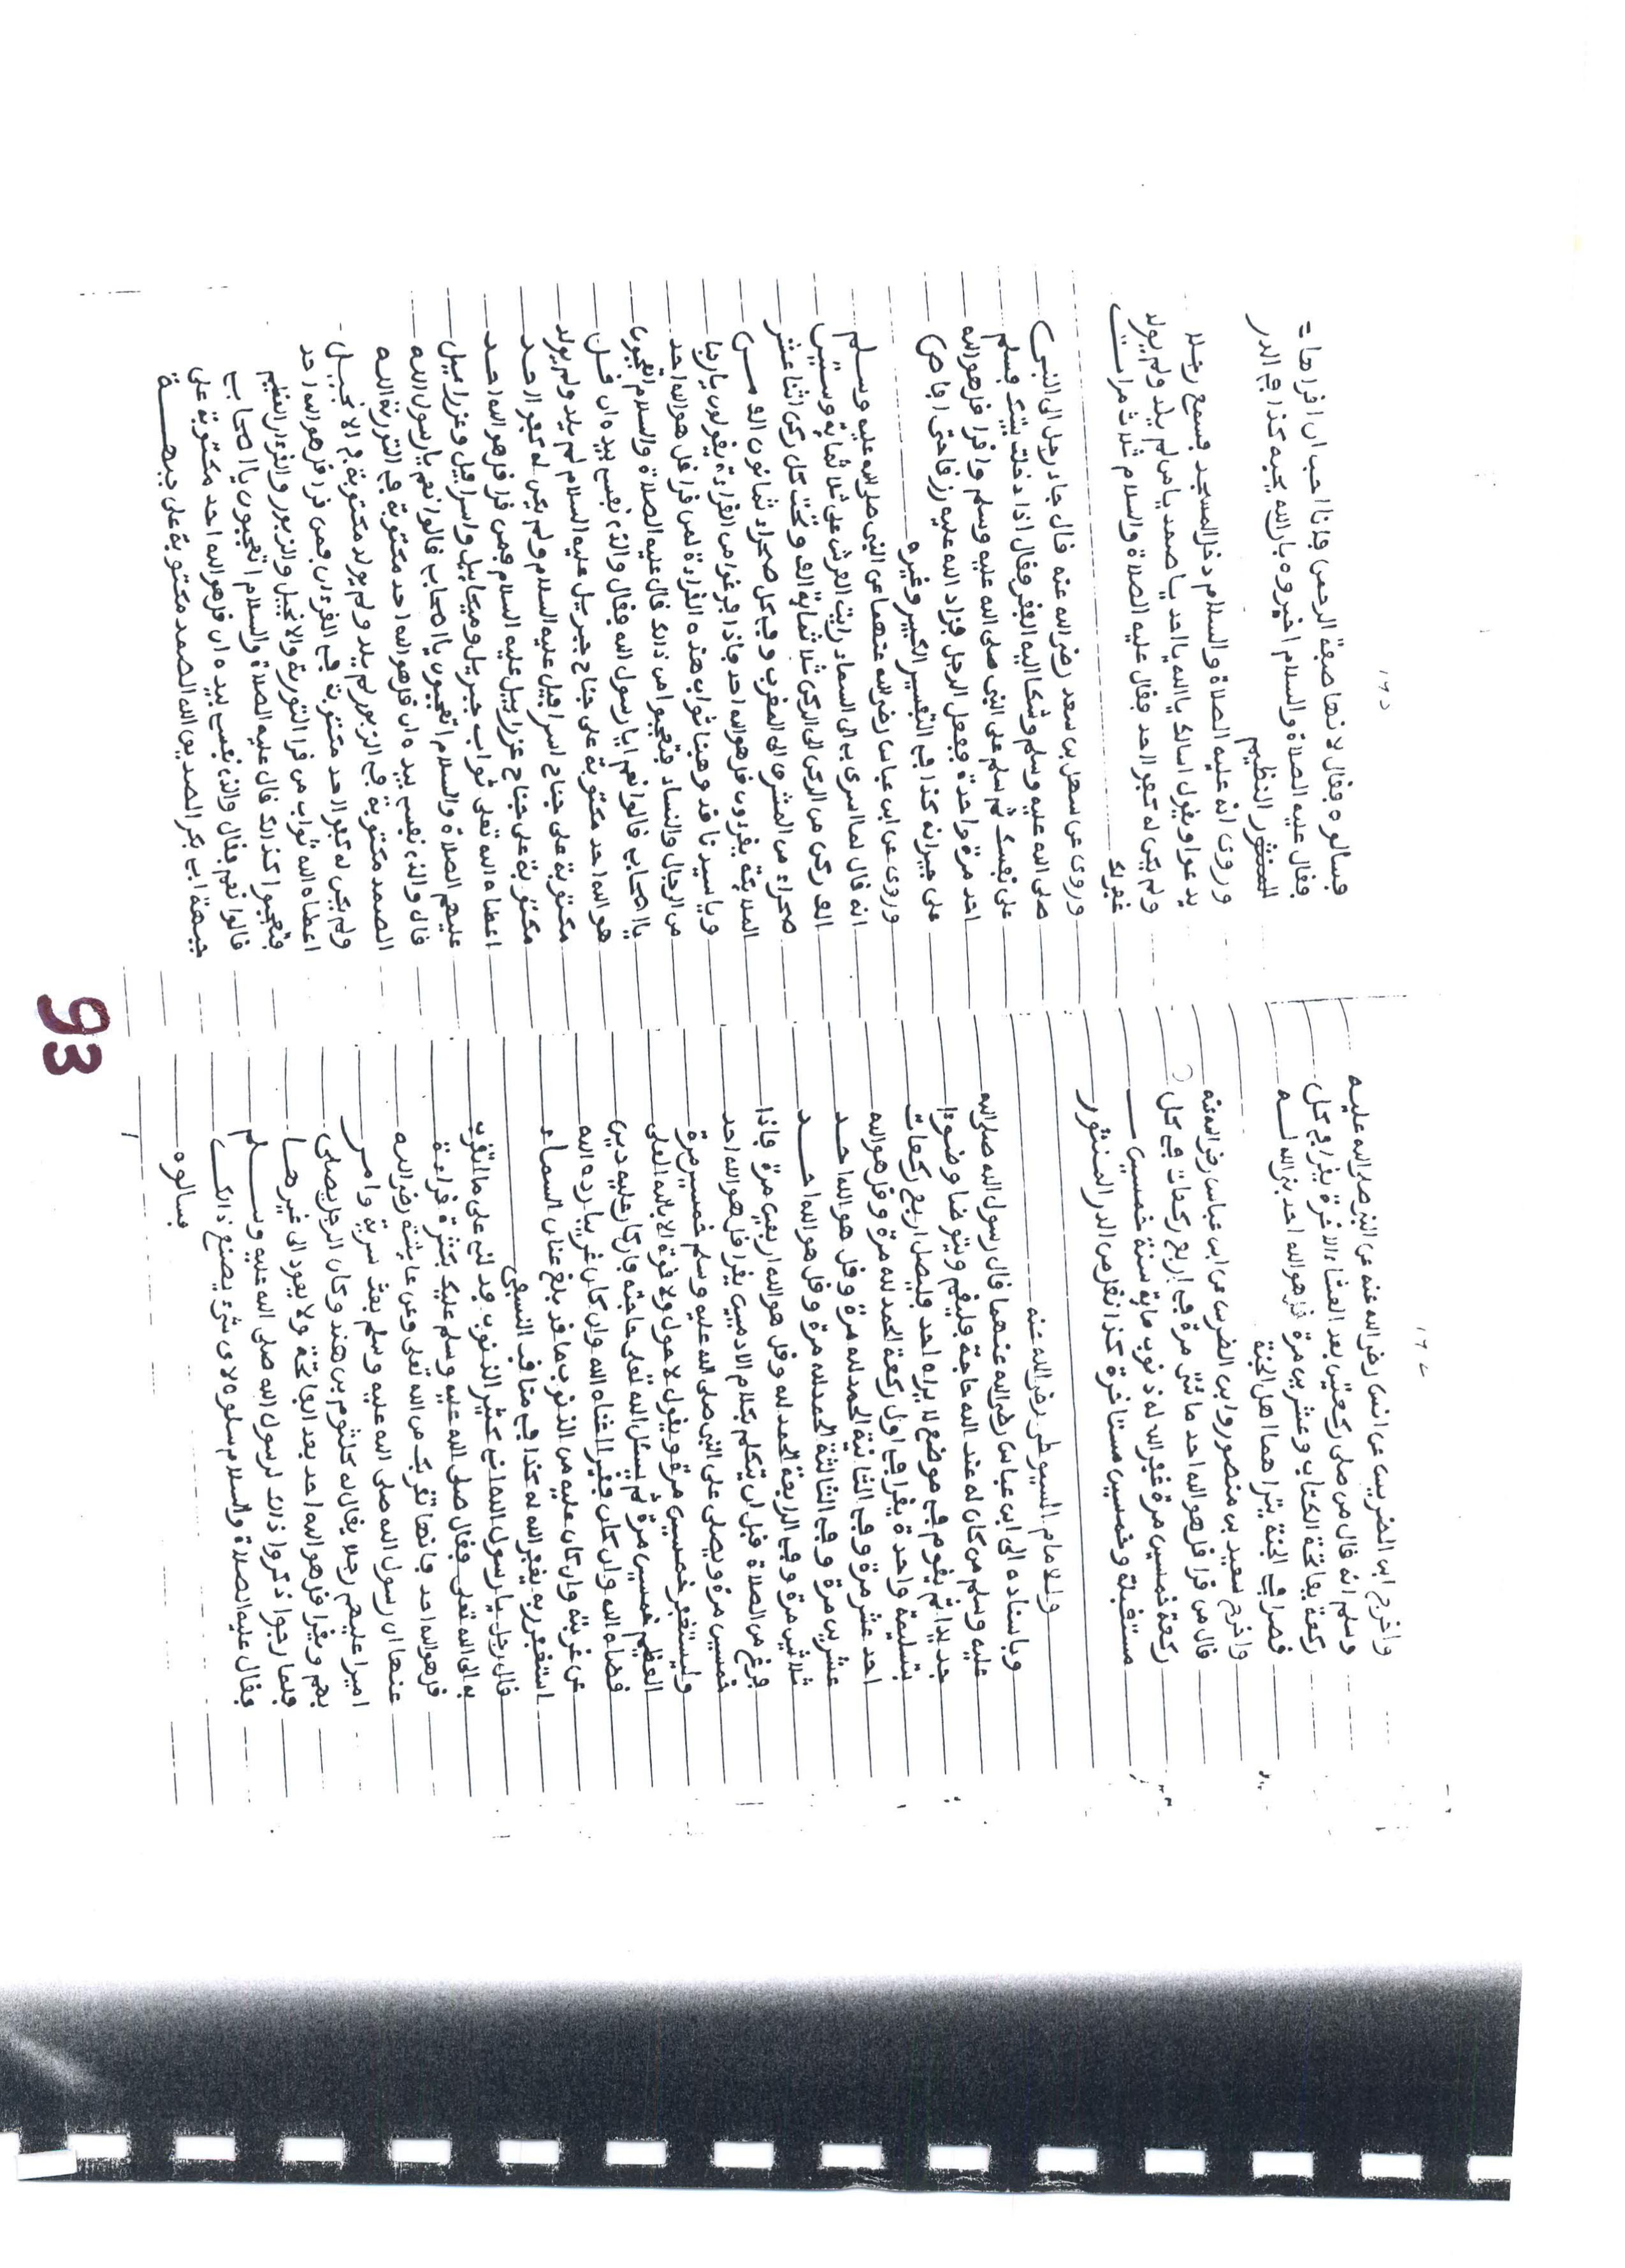 ١٧٤
واخرج ابن الضريس عن انس رضي الله عنه عن النبي صلى الله عليه
وسلم انه قال من صلى ركعتين بعد العشاء الاخرة يقرا في كل
ركعة بفاتحة الكتاب وعشرين مرة قل هو الله احد بنى الله لــه
قصرا في الجنة يتراءهما اهل الجنة
واخرج سعيد بن منصور وابن الضريس عن ابن عباس رضي الله عنه
قال من قرا قل هو الله احد مائتي مرة في اربع ركعات في كل
ركعة خمسين مرة غفر الله له ذنوب ماية سنة خمسيــن
مستقبلة وخمسين مستاخرة كذا نقل من الدر المنثور
وللامام السيوطي رضي الله عنه
وباسناده الى ابن عباس رضي الله عنهما قال رسول الله صلى الله
عليه وسلم من كان له عند الله حاجة فليقم ويتوضا وضوءا
جديدا ثم يقوم في موضع لا يراه احد فليصل اربع ركعات
بتسليمة واحدة يقرا في اول ركعة الحمد لله مرة وقل هو الله
احد عشر مرة وفي الثانية الحمد لله مرة وقل هو الله احــد
عشرين مرة وفي الثالثة الحمد لله مرة وقل هو الله احــد
ثلاثين مرة وفي الرابعة الحمد لله وقل هو الله اربعين مرة فاذا
فرغ من الصلاة قبل ان يتكلم بكلام الادميين يقرا قل هو الله احد
خمسين مرة ويصلى على النبي صلى الله عليه وسلم خمسين مرة
وليستغفر خمسين مرة ويقول لا حول ولا قوة الا بالله العلى
العظيم خمسين مرة ثم ليسئل الله تعلى حاجته فان كان عليه دين
قضاه الله وان كان فقيرا اغناه الله وان كان غريبا رده الله
من غربته وان كان عليه من الذنوب ما قد بلغ عنان السماء
استغفر ربه يغفر الله له كذا في مناقب النسفي
قال رجل يا رسول الله انى كثير الذنوب فدلني على ما اتقرب
به الى الله تعلى فقال صلى الله عليه وسلم عليك بكثرة قراءة
قل هو الله احد فانها تقربك من الله تعلى وعن عايشة رضي اللــه
عنها ان رسول الله صلى الله عليه وسلم بعث سرية وامــر
اميرا عليهم رجلا يقال له كلثوم بن هند وكان الرجل يصلى
بهم ويقرا قل هو الله احد بعد الفاتحة ولا يعود الى غيرهــا
فلما رجعوا ذكروا ذلك لرسول الله صلى الله عليه وســلم
فقال عليه الصلاة والسلام سلوه لاى شىء يصنع ذالك
فسالوه
١٧٥
فسالوه فقال لانها صفة الرحمن فانا احب ان اقراهــا
فقال عليه الصلاة والسلام اخبروه بان الله يحبه كذا في الدر
المنثور النظيم
وروى انه عليه الصلاة والسلام دخل المسجد فسمع رجــلا
يدعوا ويقول اسالك يا الله يا احد يا صمد يا من لم يلد ولم يولد
ولم يكن له كفوا احد فقال عليه الصلاة والسلام ثلاث مرات
غفر لك
وروى عن سهل بن سعد رضي الله عنه قال جاء رجل الى النبي
صلى الله عليه وسلم وشكا اليه الفقر فقال اذا دخلت بيتك فسلم
على نفسك ثم سلم على النبي صلى الله عليه وسلم واقرا قل هو الله
احد مرة واحدة ففعل الرجل فزاد الله عليه رزقا حتى افاض
على جيرانه كذا في التفسير الكبير وغيره
وروى عن ابن عباس رضي الله عنهما عن النبي صلى الله عليه وسلــم
انه قال لما اسرى بي الى السماء رايت العرش على ثلاثماية وستين
الف ركن من الركن الى الركن ثلاثماية الف وتحت كل ركن اثنا عشر
صحراء من المشرق الى المغرب وفي كل صحراء ثمانون الفا مــن
الملايكة يقرءون قل هو الله احد فاذا فرغوا من القراءة يقولون يا ربنا
ويا سيدنا قد وهبنا ثواب هذه القراءة لمن قرا قل هو الله احد
من الرجال والنساء فتعجبوا من ذالك قال عليه الصلاة والسلام اتعجبون
يا اصحابي قالوا نعم يا رسول الله فقال والذي نفسي بيده ان قــل
هو الله احد مكتوبة على جناح جبريل عليه السلام لم يلد ولم يولد
مكتوبة على جناح اسرافيل عليه السلام ولم يكن له كفوا احــد
مكتوبة على جناح عزرابيل عليه السلام فمن قرا قل هو الله احــد
اعطاه الله تعلى ثواب جبريل وميكاييل واسرافيل وعزراييل
عليهم الصلاة والسلام اتعجبون يا اصحاب قالوا نعم يا رسول الله
قال والذي نفسي بيده ان قل هو الله احد مكتوبة في التورية اللــه
الصمد مكتوبة في الزبور لم يلد ولم يولد مكتوبة في الانجيــل
ولم يكن له كفوا احد مكتوبة في القرءان فمن قرا قل هو الله احد
اعطاه الله ثواب من قرا التورية والانجيل والزبور والقرءان العظيم
فتعجبوا كذالك قال عليه الصلاة والسلام اتعجبون يا اصحابي
قالوا نعم فقال والذي نفسي بيده ان قل هو الله احد مكتوبة على
جبهة ابي بكر الصديق الله الصمد مكتوبة على جبهــة
93